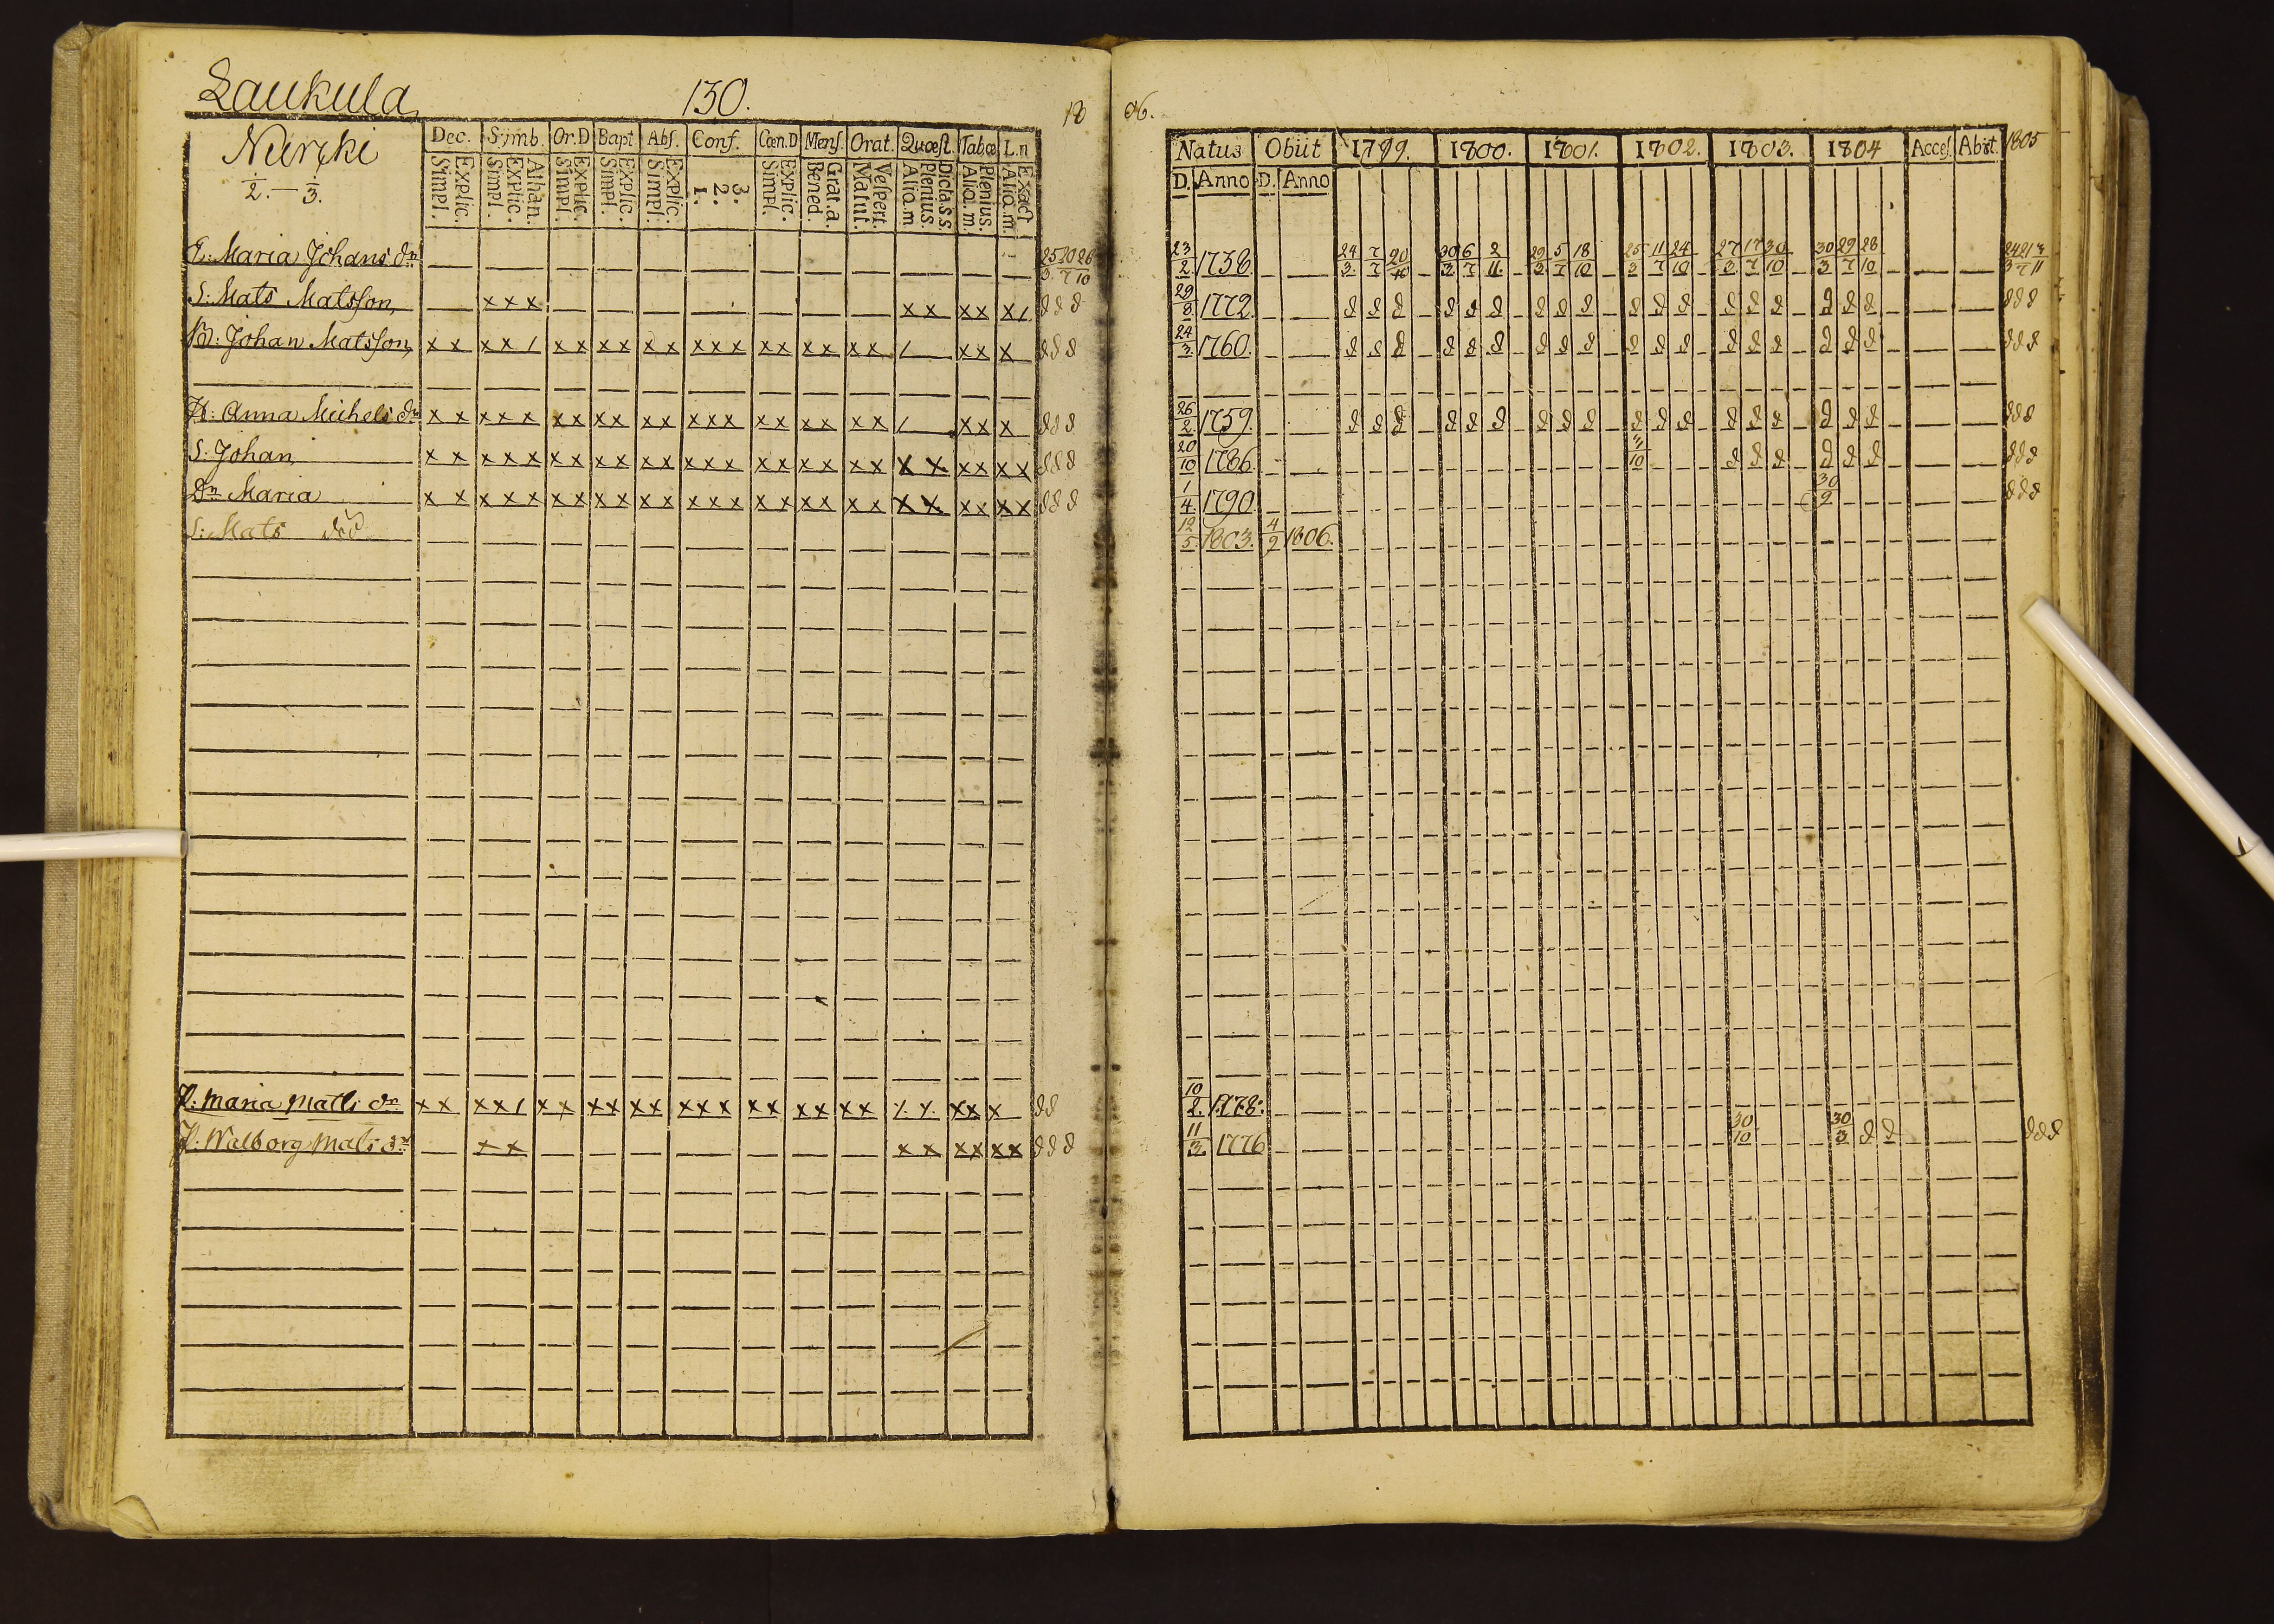 Laukula 130. 18 06.
Nurcki
2. — 3.
Dec. Symb. Or.D Bapt Abs. Conf. Cœn.D Mens. Orat. Quæst. Tabœ L.n
Simpl. Explic. Simpl. Explic. Athan. Simpl. Explic. Simpl. Explic. Simpl. Explic. 1. 2. 3. Simpl. Explic. Bened. Grat.a. Matut. Vespert. Aliq.m Plenius. Dicta.s.s. Aliq.m Plenius. Aliq.m. Exact
Maria Johans dr
S: Mats Matsson x x x x x x x x /
B: Johan Matsson x x x x / x x x x x x x x x x x x x x x x / x x x
H: Anna Michels dr x x x x x x x x x x x x x x x x x x x x x / x x x
S: Johan x x x x x x x x x x x x x x x x x x x x x x x x x x x
Dr Maria x x x x x x x x x x x x x x x x x x x x x x x x x x x
S: Mats död
P: Maria Mats dr x x x x / x x x x x x x x x x x x x x x x /. /. x x x
P: Walborg Mats dr x x x x x x x x
Natus Obiit 1799. 1800. 1801. 1802. 1803. 1804 Acces. Abiit. 1805
D. Anno D. Anno
23/2 1738 24/3 7/7 20/10 30/3 6/7 2/11 29/3 5/7 18/10 25/3 11/7 24/10 27/3 17/7 30/10 30/3 29/7 28/10
29/8 1772
24/3 1760
26/2 1759
20/10 1786
1/4 1790 30/9
12/5 1803. 4/9 1806.
10/2 1778:
11/3 1776 30/10 30/3